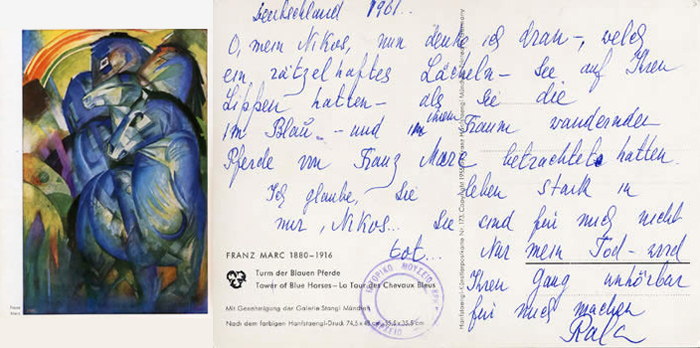 Deutschland 1961..
O, mein Nikos, nun denke ich dran –, welch
ein rätzelhaftes Lächeln – Sie auf Ihren
Lippen hatten – als Sie die
im Blau – und im ihrem Traum wandernden
Pferde von Franz Marc betrachtete hatten.
Ich glaube, Sie leben stark in
mir, Nikos... Sie sind für mich nicht
tot... Nur mein Tod – wird
Ihren Gang unhörbar
für mich machen
FRANZ MARC 1880–1916
Turm der Blauen Pferde
Tower of Blue Horses – La Tour des Chevaux Bleus
Mit Genehmigung der Galerie Stangl München
Nach dem farbigen Hanfstaengl-Druck
Hanfstaengl-Künstlerpostkarte Nr. 175, Copyright
Germany
Franz
Marc